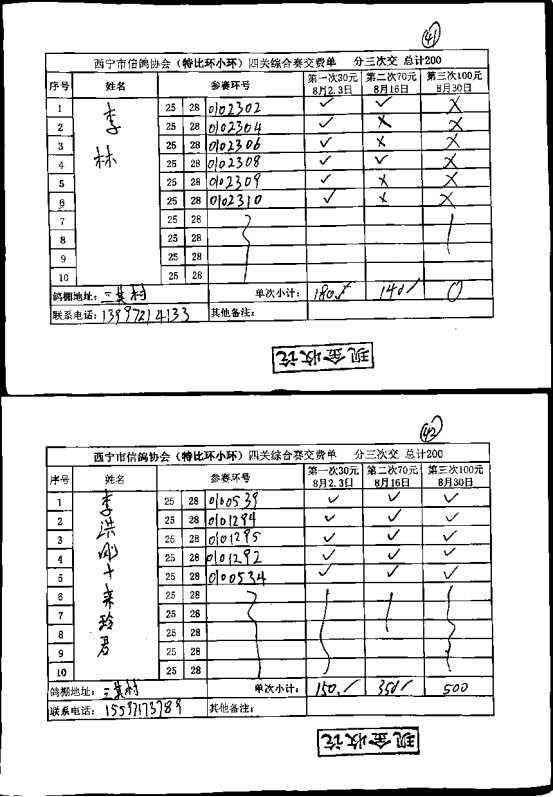 41
西宁市信鸽协会（特比环小环）四关综合赛交费单 分三次交 总计200
序号 姓名 参赛环号 第一次30元 8月2.3日 第二次70元 8月16日 第三次100元 8月30日
李林
1 25 28 0102302 ✓ ✓ ×
2 25 28 0102304 ✓ × ×
3 25 28 0102306 ✓ × ×
4 25 28 0102308 ✓ ✓ ×
5 25 28 0102309 ✓ × ×
6 25 28 0102310 ✓ × ×
7 25 28
8 25 28
9 25 28
10 25 28
鸽棚地址：三其村 单次小计：180 140 0
联系电话：13997214133 其他备注：
现金收讫
42
西宁市信鸽协会（特比环小环）四关综合赛交费单 分三次交 总计200
序号 姓名 参赛环号 第一次30元 8月2.3日 第二次70元 8月16日 第三次100元 8月30日
李洪刚十来玲君
1 25 28 0100539 ✓ ✓ ✓
2 25 28 0101294 ✓ ✓ ✓
3 25 28 0101295 ✓ ✓ ✓
4 25 28 0101292 ✓ ✓ ✓
5 25 28 0100534 ✓ ✓ ✓
6 25 28
7 25 28
8 25 28
9 25 28
10 25 28
鸽棚地址：三其村 单次小计：150 350 500
联系电话：15597173789 其他备注：
现金收讫